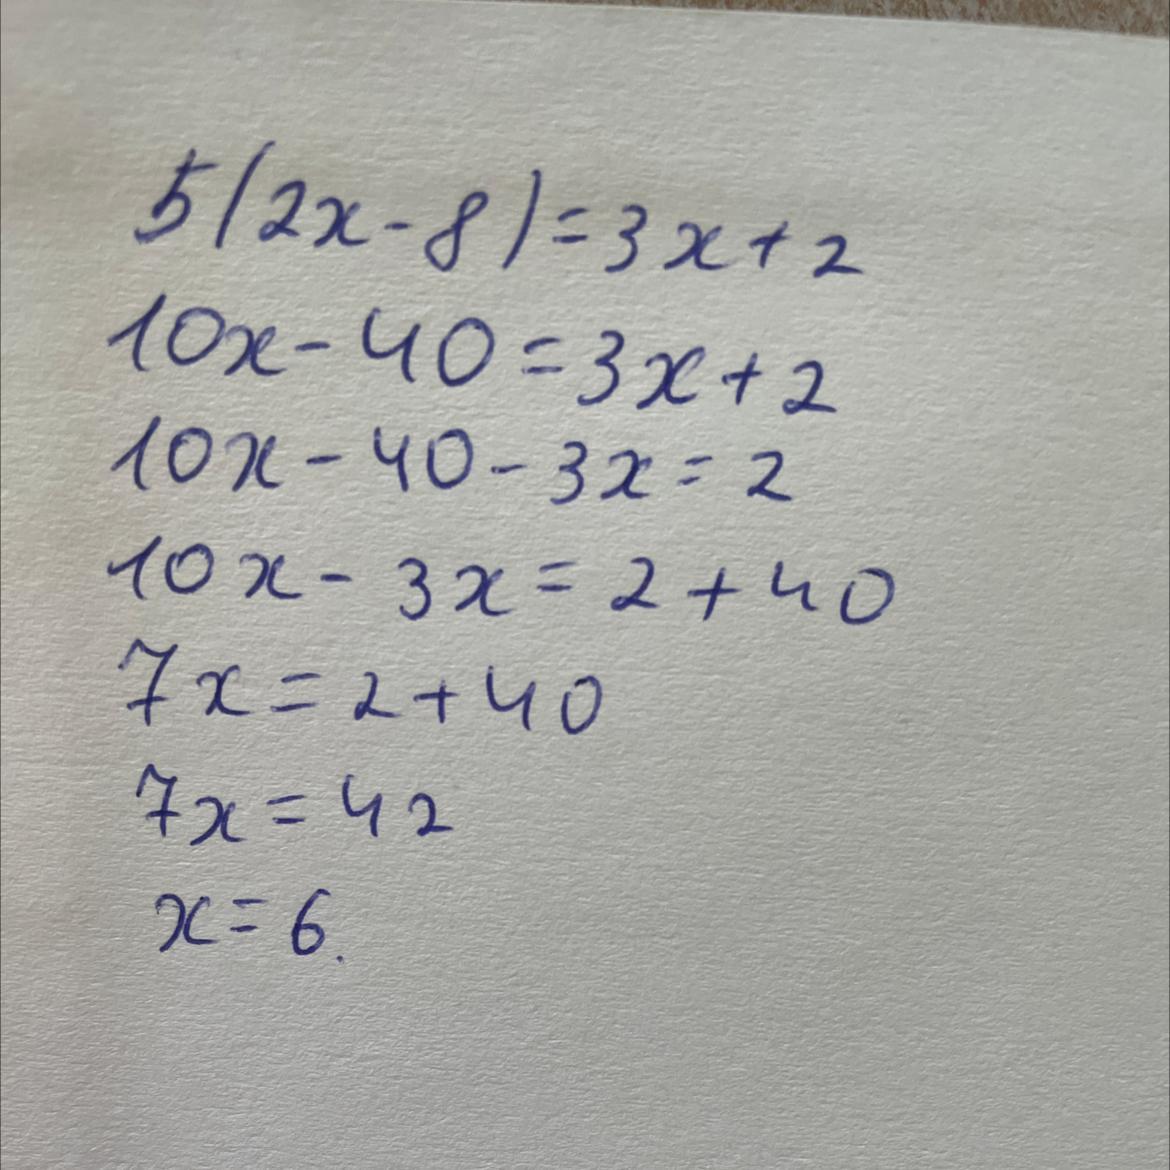 5(2x-8)=3x+2
10x-40=3x+2
10x-40-3x=2
10x-3x=2+40
7x=2+40
7x=42
x=6.